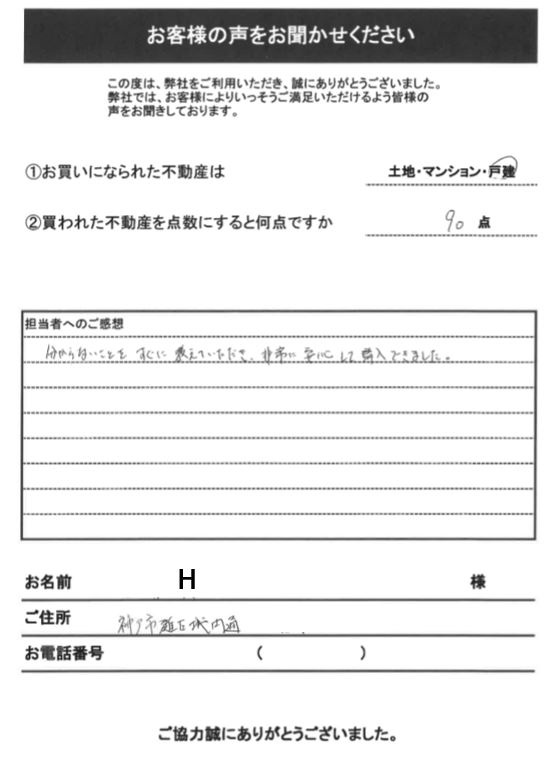 お客様の声をお聞かせください
この度は、弊社をご利用いただき、誠にありがとうございました。
弊社では、お客様によりいっそうご満足いただけるよう皆様の
声をお聞きしております。
①お買いになられた不動産は 土地・マンション・戸建
②買われた不動産を点数にすると何点ですか 90 点
担当者へのご感想
分からないことを すぐに 教えていただき、非常に 安心 して 購入 できました。
お名前 H 様
ご住所 神戸市灘区城内通
お電話番号 ( )
ご協力誠にありがとうございました。